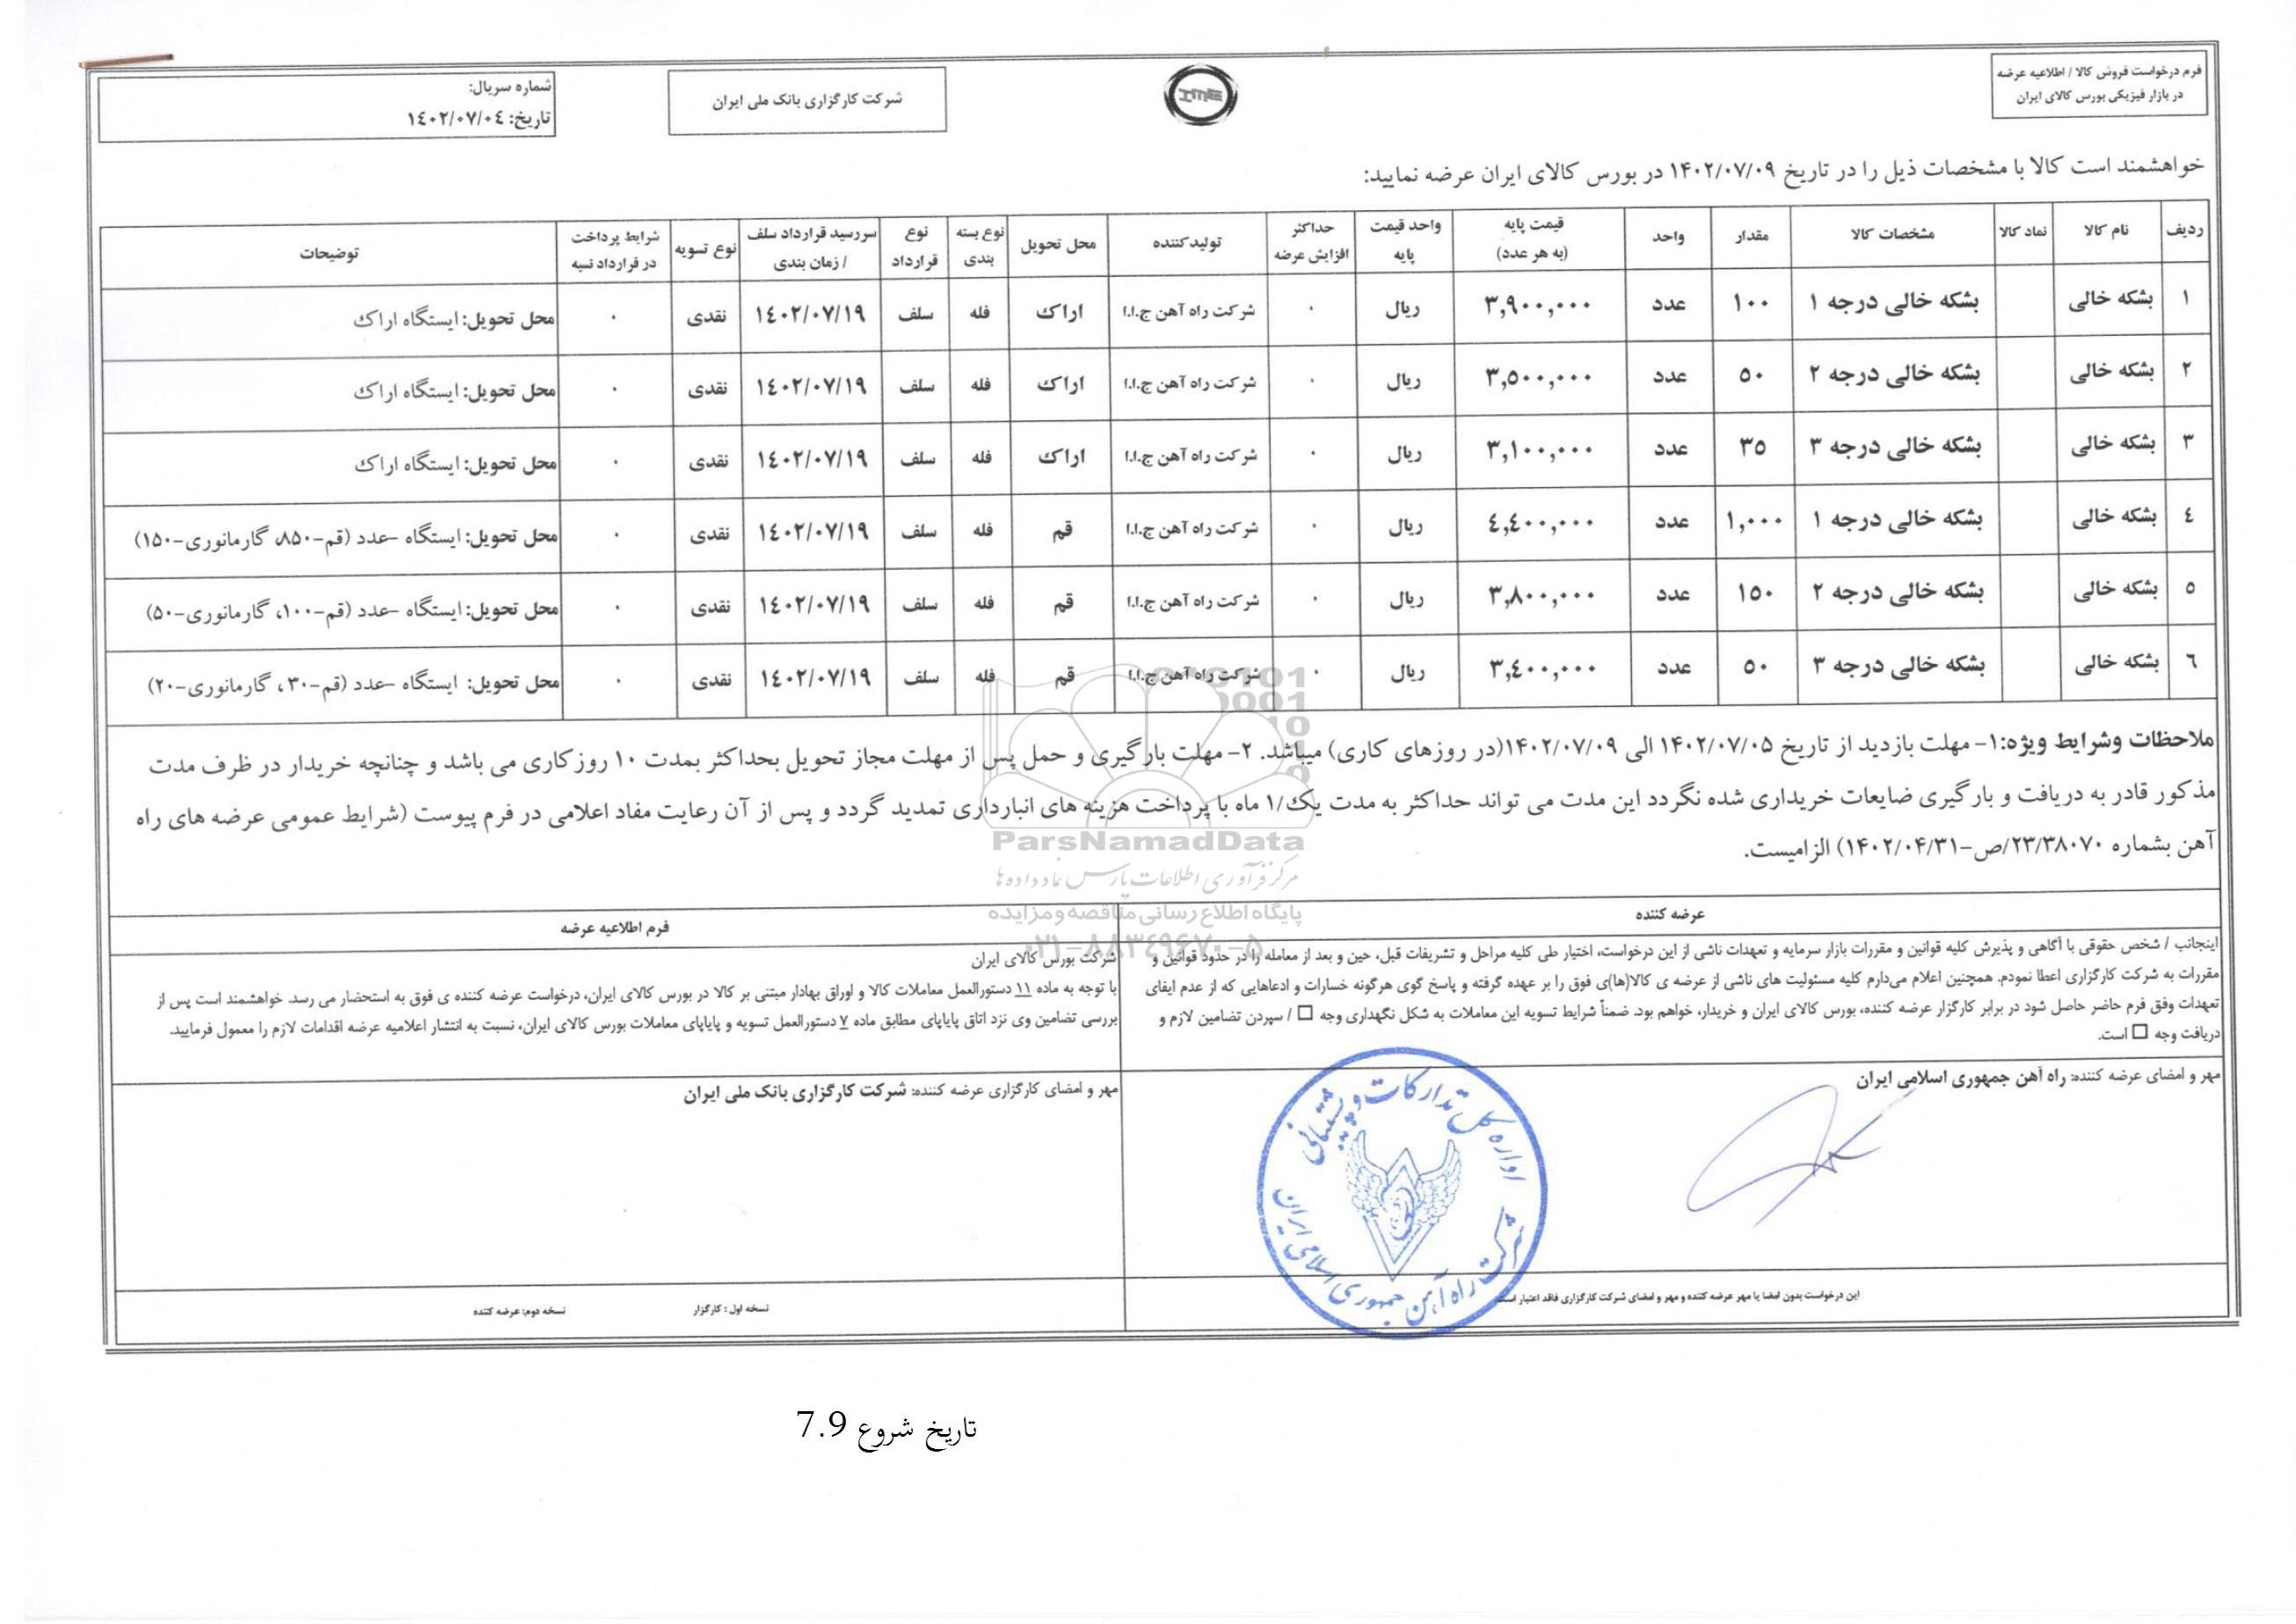 فرم درخواست فروش کالا / اطلاعیه عرضه
در بازار فیزیکی بورس کالای ایران
IME
شرکت کارگزاری بانک ملی ایران
شماره سریال:
تاریخ: ١٤٠٢/٠٧/٠٤
خواهشمند است کالا با مشخصات ذیل را در تاریخ ۱۴۰۲/۰۷/۰۹ در بورس کالای ایران عرضه نمایید:
ردیف نام کالا نماد کالا مشخصات کالا مقدار واحد قیمت پایه (به هر عدد) واحد قیمت پایه حداکثر افزایش عرضه تولیدکننده محل تحویل نوع بسته بندی نوع قرارداد سررسید قرارداد سلف / زمان بندی نوع تسویه شرایط پرداخت در قرارداد نسیه توضیحات
١ بشکه خالی بشکه خالی درجه ١ ١٠٠ عدد ٣,٩٠٠,٠٠٠ ریال ٠ شرکت راه آهن ج.ا.ا اراک فله سلف ١٤٠٢/٠٧/١٩ نقدی ٠ محل تحویل: ایستگاه اراک
٢ بشکه خالی بشکه خالی درجه ٢ ٥٠ عدد ٣,٥٠٠,٠٠٠ ریال ٠ شرکت راه آهن ج.ا.ا اراک فله سلف ١٤٠٢/٠٧/١٩ نقدی ٠ محل تحویل: ایستگاه اراک
٣ بشکه خالی بشکه خالی درجه ٣ ٣٥ عدد ٣,١٠٠,٠٠٠ ریال ٠ شرکت راه آهن ج.ا.ا اراک فله سلف ١٤٠٢/٠٧/١٩ نقدی ٠ محل تحویل: ایستگاه اراک
٤ بشکه خالی بشکه خالی درجه ١ ١,٠٠٠ عدد ٤,٤٠٠,٠٠٠ ریال ٠ شرکت راه آهن ج.ا.ا قم فله سلف ١٤٠٢/٠٧/١٩ نقدی ٠ محل تحویل: ایستگاه -عدد (قم-۸۵۰، گارمانوری-۱۵۰)
٥ بشکه خالی بشکه خالی درجه ٢ ١٥٠ عدد ٣,٨٠٠,٠٠٠ ریال ٠ شرکت راه آهن ج.ا.ا قم فله سلف ١٤٠٢/٠٧/١٩ نقدی ٠ محل تحویل: ایستگاه -عدد (قم-۱۰۰، گارمانوری-۵۰)
٦ بشکه خالی بشکه خالی درجه ٣ ٥٠ عدد ٣,٤٠٠,٠٠٠ ریال ٠ شرکت راه آهن ج.ا.ا قم فله سلف ١٤٠٢/٠٧/١٩ نقدی ٠ محل تحویل: ایستگاه -عدد (قم-۳۰، گارمانوری-۲۰)
ملاحظات وشرایط ویژه:۱- مهلت بازدید از تاریخ ۱۴۰۲/۰۷/۰۵ الی ۱۴۰۲/۰۷/۰۹(در روزهای کاری) میباشد. ۲- مهلت بارگیری و حمل پس از مهلت مجاز تحویل بحداکثر بمدت ۱۰ روزکاری می باشد و چنانچه خریدار در ظرف مدت
مذکور قادر به دریافت و بارگیری ضایعات خریداری شده نگردد این مدت می تواند حداکثر به مدت یک/۱ ماه با پرداخت هزینه های انبارداری تمدید گردد و پس از آن رعایت مفاد اعلامی در فرم پیوست (شرایط عمومی عرضه های راه
آهن بشماره ۲۳/۳۸۰۷۰/ص-۱۴۰۲/۰۴/۳۱) الزامیست.
ParsNamadData
مرکز فرآوری اطلاعات پارس نماد داده ها
پایگاه اطلاع رسانی مناقصه و مزایده
۰۲۱-۸۸۳۴۹۶۷۰-۵
عرضه کننده
اینجانب / شخص حقوقی با آگاهی و پذیرش کلیه قوانین و مقررات بازار سرمایه و تعهدات ناشی از این درخواست، اختیار طی کلیه مراحل و تشریفات قبل، حین و بعد از معامله را در حدود قوانین و
مقررات به شرکت کارگزاری اعطا نمودم. همچنین اعلام می‌دارم کلیه مسئولیت های ناشی از عرضه ی کالا(ها)ی فوق را بر عهده گرفته و پاسخ گوی هرگونه خسارات و ادعاهایی که از عدم ایفای
تعهدات وفق فرم حاضر حاصل شود در برابر کارگزار عرضه کننده، بورس کالای ایران و خریدار، خواهم بود. ضمناً شرایط تسویه این معاملات به شکل نگهداری وجه □ / سپردن تضامین لازم و
دریافت وجه □ است.
فرم اطلاعیه عرضه
شرکت بورس کالای ایران
با توجه به ماده ۱۱ دستورالعمل معاملات کالا و اوراق بهادار مبتنی بر کالا در بورس کالای ایران، درخواست عرضه کننده ی فوق به استحضار می رسد. خواهشمند است پس از
بررسی تضامین وی نزد اتاق پایاپای مطابق ماده ۷ دستورالعمل تسویه و پایاپای معاملات بورس کالای ایران، نسبت به انتشار اعلامیه عرضه اقدامات لازم را معمول فرمایید.
مهر و امضای عرضه کننده: راه آهن جمهوری اسلامی ایران
مهر و امضای کارگزاری عرضه کننده: شرکت کارگزاری بانک ملی ایران
اداره کل تدارکات و پشتیبانی
شرکت راه آهن جمهوری اسلامی ایران
این درخواست بدون امضا یا مهر عرضه کننده و مهر و امضای شرکت کارگزاری فاقد اعتبار است
نسخه اول : کارگزار
نسخه دوم: عرضه کننده
تاریخ شروع 7.9